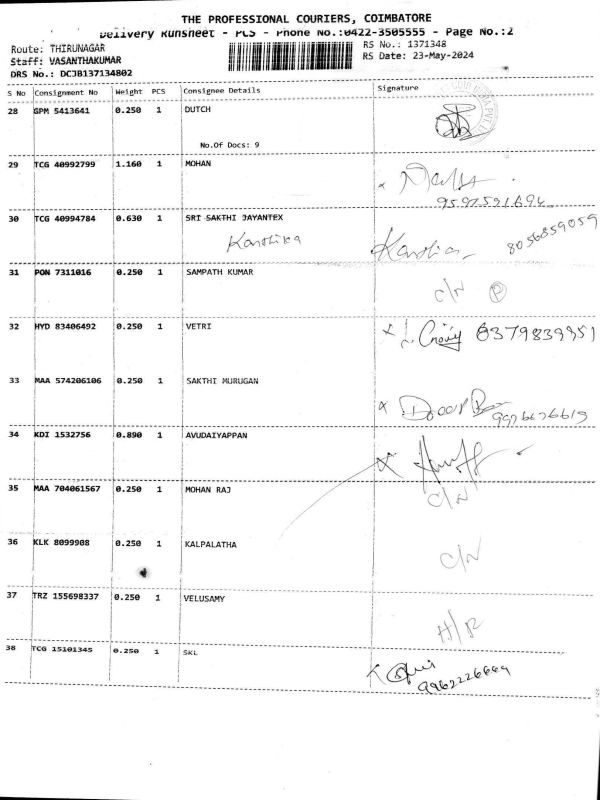 THE PROFESSIONAL COURIERS, COIMBATORE
Delivery Runsheet - PCS - Phone No.:0422-3505555 - Page No.:2
Route: THIRUNAGAR
RS No.: 1371348
Staff: VASANTHAKUMAR
RS Date: 23-May-2024
DRS No.: DCJB137134802
S No Consignment No Weight PCS Consignee Details Signature
28 GPM 5413641 0.250 1 DUTCH
No.Of Docs: 9
29 TCG 40992799 1.160 1 MOHAN
30 TCG 40994784 0.630 1 SRI SAKTHI JAYANTEX
Karthika 8056859059
31 PON 7311016 0.250 1 SAMPATH KUMAR
C/N P
32 HYD 83406492 0.250 1 VETRI
8379839951
33 MAA 574206106 0.250 1 SAKTHI MURUGAN
34 KDI 1532756 0.890 1 AVUDAIYAPPAN
35 MAA 704061567 0.250 1 MOHAN RAJ
C/N
36 KLK 8099908 0.250 1 KALPALATHA
C/N
37 TRZ 155698337 0.250 1 VELUSAMY
H/R
38 TCG 15101345 0.250 1 SKL